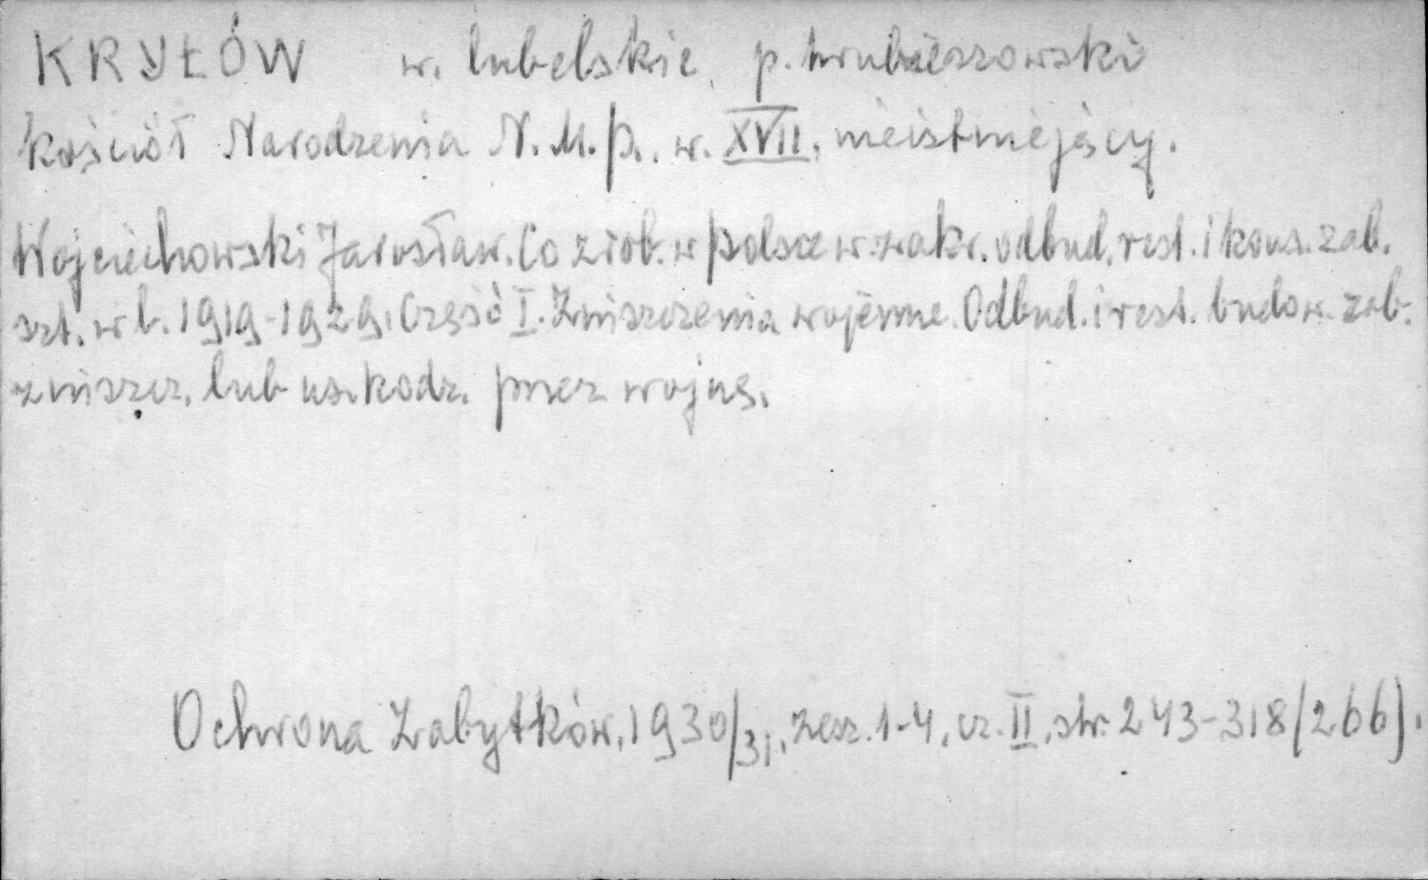 KRYŁÓW w. lubelskie, p. hrubieszowski
kościół Narodzenia N.M.P., w. XVII, nieistniejący.
Wojciechowski Jarosław. Co zrob. w Polsce w zakr. odbud. rest. i kons. zab.
szt. w l. 1919-1929. Część I. Zniszczenia wojenne. Odbud. i rest. budow. zab.
zniszcz. lub uszkodz. przez wojnę.
Ochrona Zabytków, 1930/31, zesz. 1-4, cz. II, str. 243-318 (266).